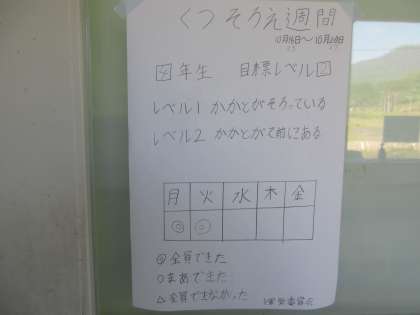 くつそろえ週間
10月16日〜10月20日
年生 目標レベル2
レベル1 かかとがそろっている
レベル2 かかとが前にある
月 火 水 木 金
◎ ◎
◎全員できた
○まあできた
△全員できなかった
委員会